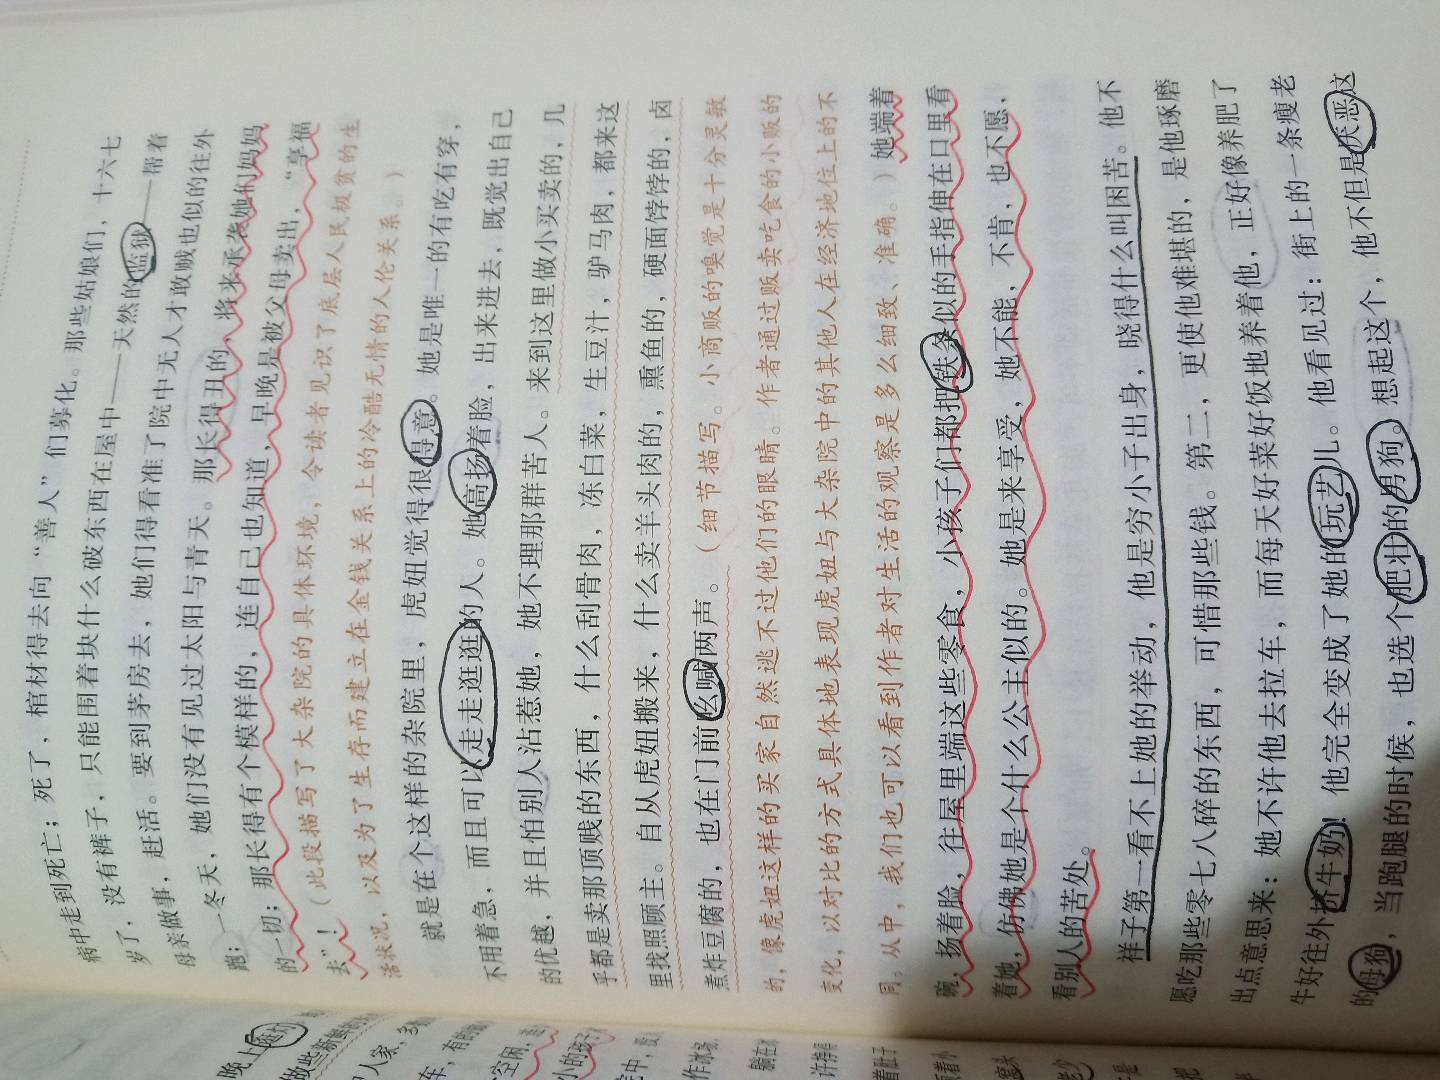 病中走到死亡；死了，棺材得去向“善人”们募化。那些姑娘们，十六七
岁了，没有裤子，只能围着块什么破东西在屋中——天然的监狱——帮着
母亲做事，赶活。要到茅房去，她们得看准了院中无人才敢贼也似的往外
跑；一冬天，她们没有见过太阳与青天。那长得丑的，将来承袭她们妈妈
的一切；那长得有个模样的，连自己也知道，早晚是被父母卖出，“享福
去”！（此段描写了大杂院的具体环境，令读者见识了底层人民极贫的生
活状况，以及为了生存而建立在金钱关系上的冷酷无情的人伦关系。）
就是在个这样的杂院里，虎妞觉得很得意。她是唯一的有吃有穿，
不用着急，而且可以走走逛逛的人。她高扬着脸，出来进去，既觉出自己
的优越，并且怕别人沾惹她，她不理那群苦人。来到这里做小买卖的，几
乎都是卖那顶贱的东西，什么刮骨肉，冻白菜，生豆汁，驴马肉，都来这
里找照顾主。自从虎妞搬来，什么卖羊头肉的，熏鱼的，硬面饽饽的，卤
煮炸豆腐的，也在门前吆喊两声。（细节描写。小商贩的嗅觉是十分灵敏
的，像虎妞这样的买家自然逃不过他们的眼睛。作者通过贩卖吃食的小贩的
变化，以对比的方式具体地表现虎妞与大杂院中的其他人在经济地位上的不
同。从中，我们也可以看到作者对生活的观察是多么细致、准确。）她端着
碗，扬着脸，往屋里端这些零食，小孩子们都把铁条似的手指伸在口里看
着她，仿佛她是个什么公主似的。她是来享受，她不能，不肯，也不愿，
看别人的苦处。
祥子第一看不上她的举动，他是穷小子出身，晓得什么叫困苦。他不
愿吃那些零七八碎的东西，可惜那些钱。第二，更使他难堪的，是他琢磨
出点意思来：她不许他去拉车，而每天好菜好饭地养着他，正好像养肥了
牛好往外挤牛奶！他完全变成了她的玩艺儿。他看见过：街上的一条瘦老
的母狗，当跑腿的时候，也选个肥壮的男狗。想起这个，他不但是厌恶这
晚上逛
做些新鲜的